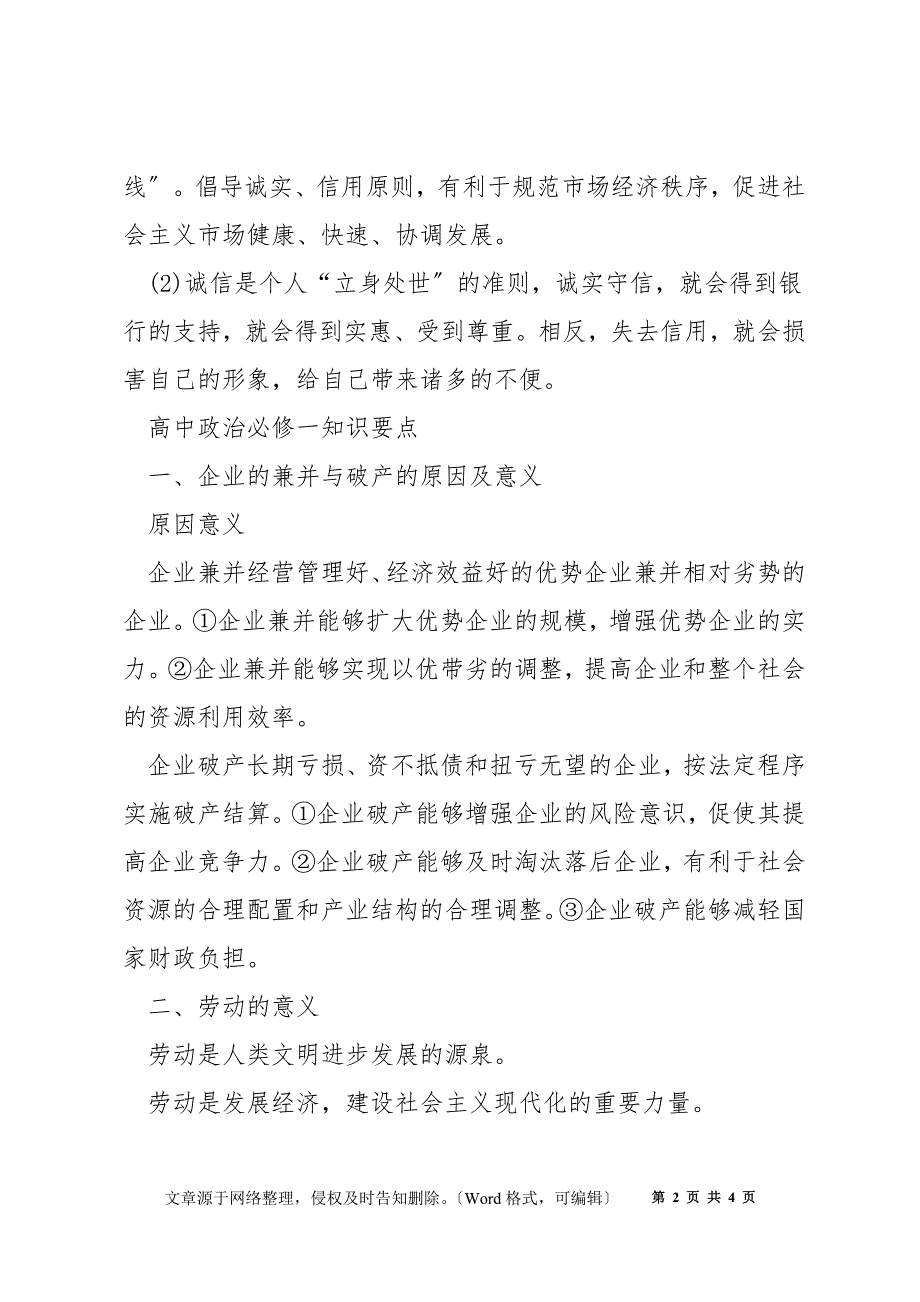 线〞。倡导诚实、信用原则，有利于规范市场经济秩序，促进社
会主义市场健康、快速、协调发展。
(2)诚信是个人“立身处世〞的准则，诚实守信，就会得到银
行的支持，就会得到实惠、受到尊重。相反，失去信用，就会损
害自己的形象，给自己带来诸多的不便。
高中政治必修一知识要点
一、企业的兼并与破产的原因及意义
原因意义
企业兼并经营管理好、经济效益好的优势企业兼并相对劣势的
企业。①企业兼并能够扩大优势企业的规模，增强优势企业的实
力。②企业兼并能够实现以优带劣的调整，提高企业和整个社会
的资源利用效率。
企业破产长期亏损、资不抵债和扭亏无望的企业，按法定程序
实施破产结算。①企业破产能够增强企业的风险意识，促使其提
高企业竞争力。②企业破产能够及时淘汰落后企业，有利于社会
资源的合理配置和产业结构的合理调整。③企业破产能够减轻国
家财政负担。
二、劳动的意义
劳动是人类文明进步发展的源泉。
劳动是发展经济，建设社会主义现代化的重要力量。
文章源于网络整理，侵权及时告知删除。〔Word 格式，可编辑〕 第 2 页 共 4 页